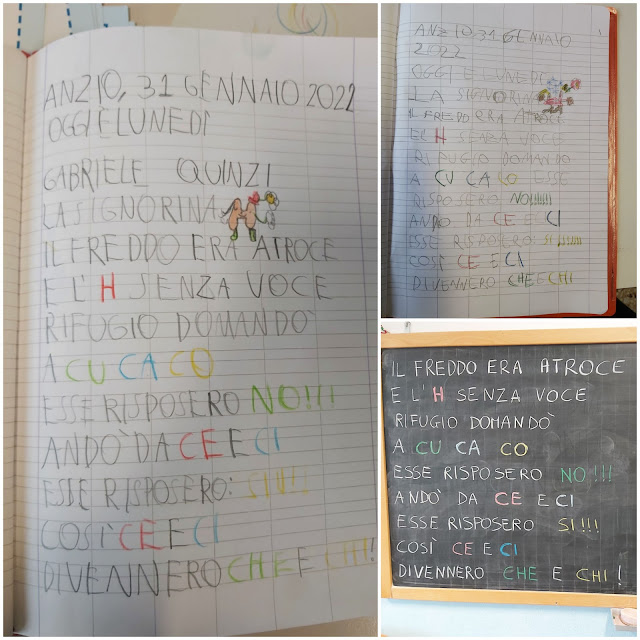 ANZIO, 31 GENNAIO 2022
OGGI È LUNEDÌ
GABRIELE QUINZI
LA SIGNORINA
IL FREDDO ERA ATROCE
E L'H SENZA VOCE
RIFUGIO DOMANDÒ
A CU CA CO
ESSE RISPOSERO NO!!!
ANDÒ DA CE E CI
ESSE RISPOSERO: SI!!!
COSÌ CE E CI
DIVENNERO CHE E CHI!
ANZIO, 31 GENNAIO
2022
OGGI È LUNEDÌ
LA SIGNORINA
IL FREDDO ERA ATROCE
E L H SENZA VOCE
RIFUGIO DOMANDO
A CU CA CO ESSE
RISPOSERO NO!!!!!!
ANDO DA CE E CI
ESSE RISPOSERO SI!!!!!!!
COSÌ CE E CI
DIVENNERO CHE E CHI
IL FREDDO ERA ATROCE
E L'H SENZA VOCE
RIFUGIO DOMANDÒ
A CU CA CO
ESSE RISPOSERO NO!!!
ANDÒ DA CE E CI
ESSE RISPOSERO SI!!!
COSÌ CE E CI
DIVENNERO CHE E CHI!